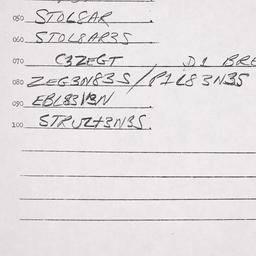 050 STOL8AR.
060 STOL8AR3S
070 C3ZEGT D1 BRE
080 ZEG3N83S/P1L83N3S
090 EBL83V3N
100 STRUZ+3N3S.